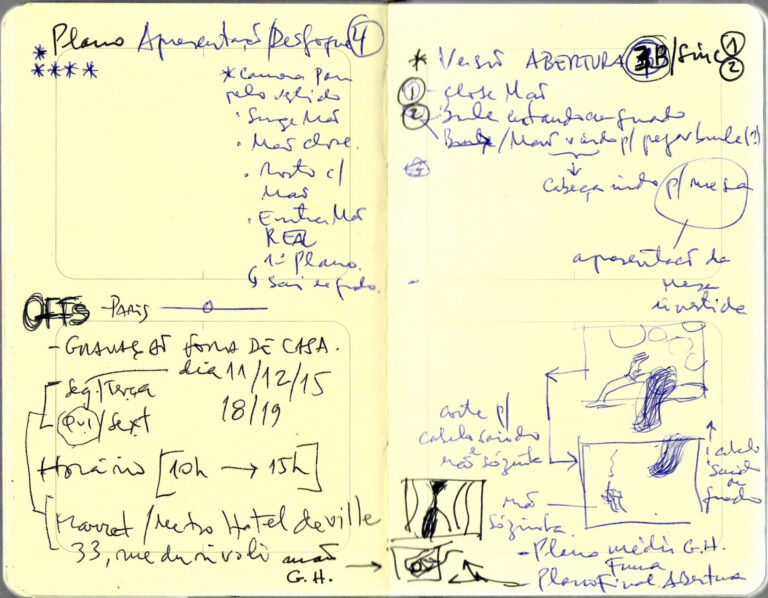 * Plano Apresentação/Desfoque 4
****
* Camera Pan
pelo vestido
• Surge Mão
• Mão close.
• Rosto c/
Mão
• Entra Mão
REAL
1º Plano.
↳ sai
OFFs - PARIS
- GRAVAÇÃO FORA DE CASA.
dia 11/12/15
Seg/Terça
18/19
Qui/Sext
Horário [10h → 15h]
/Metro Hotel de ville
33, rue du rivoli
mão
G.H. →
* Versão ABERTURA 3B/Sinc 1
2
1 - Close Mão
2 - Bule entrando em quadro
/Mão vindo p/ pegar bule (?)
3
cabeça indo p/ mesa
apresentação da
mesa
invertida
corte p/
cabelo saindo
mão sózinha
↑ cabelo
saindo
de
quadro
mão
sózinha.
- Plano médio G.H.
Plano Final Abertura